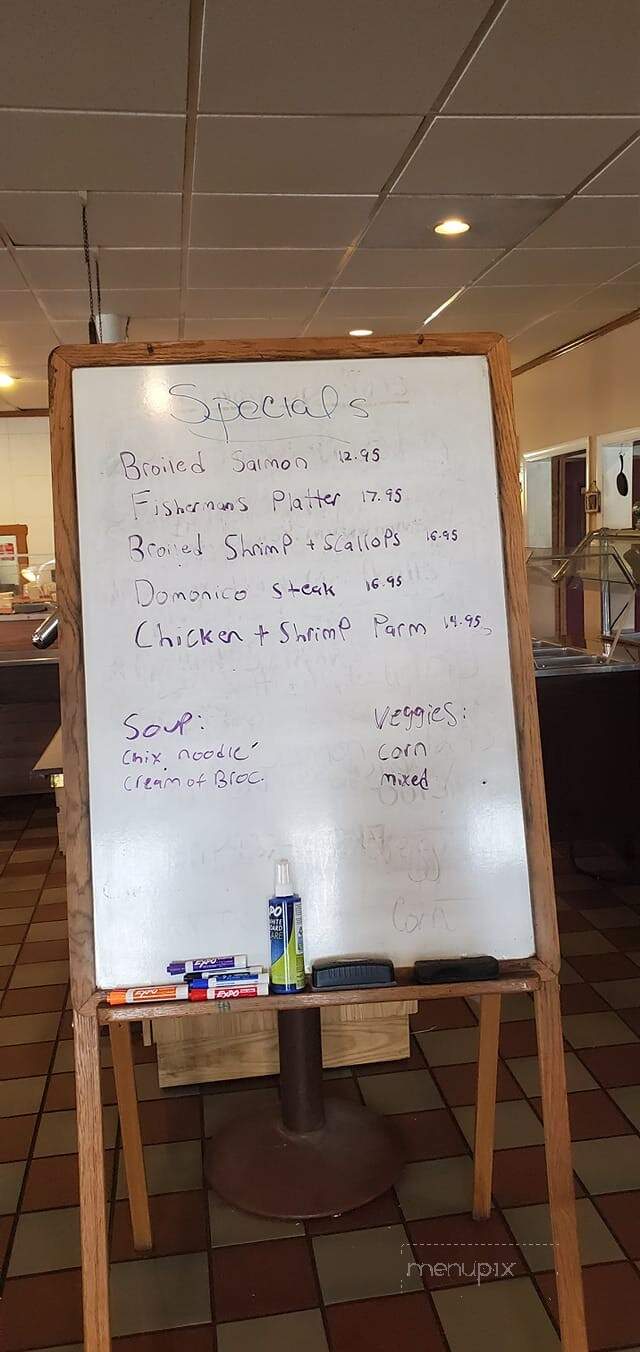 Specials
Broiled Salmon 12.95
Fishermans Platter 17.95
Broiled Shrimp + Scallops 16.95
Domonico Steak 16.95
Chicken + Shrimp Parm 14.95
Soup:
Chix noodle
Cream of Broc.
Veggies:
corn
mixed
Corn
EXPO
EXPO
EXPO
menupix